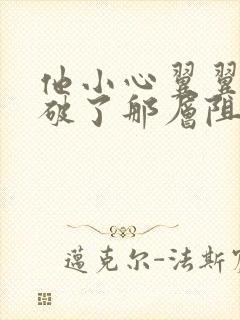 他小心翼翼
破了那层阻
邁克尔-法斯宾